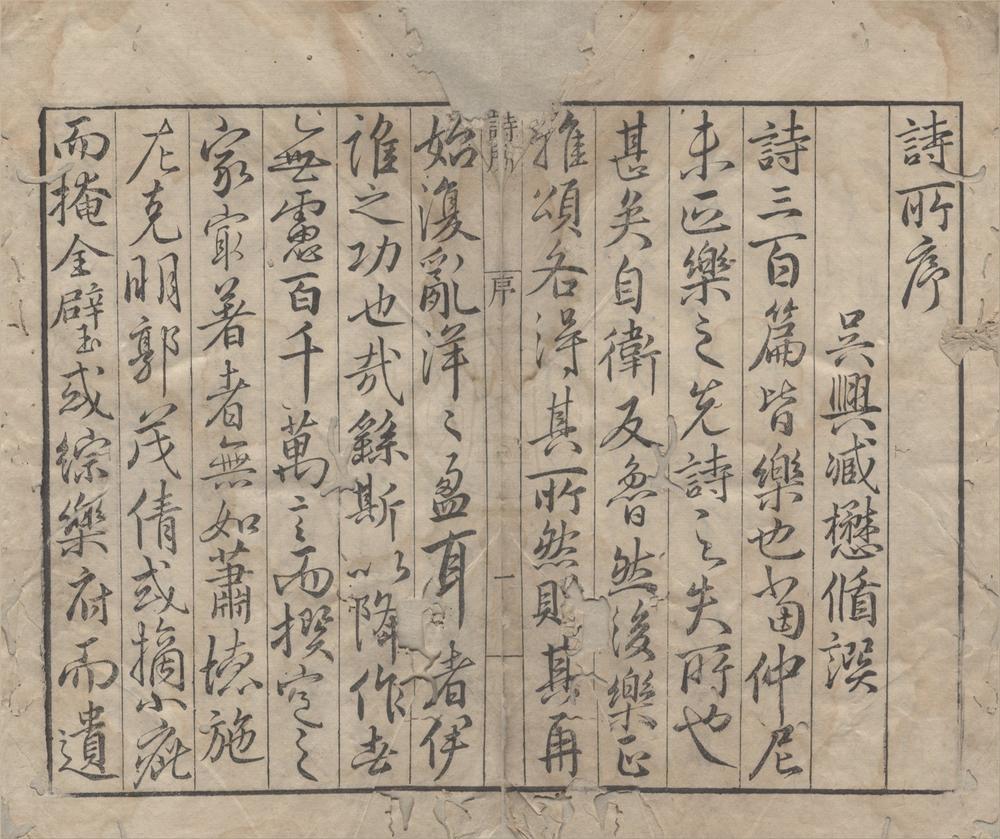 詩所序
吳興臧懋循譔
詩三百篇皆樂也當仲尼
未正樂之先詩之失所也
甚矣自衛反魯然後樂正
雅頌各得其所然則其再
詩所
序
一
始復亂洋〻盈耳者伊
誰之功也哉繇斯以降作者
無慮百千萬言而撰定之
家寂著者無如蕭德施
左克明郭茂倩或摘小疵
而掩全璧或綜樂府而遺